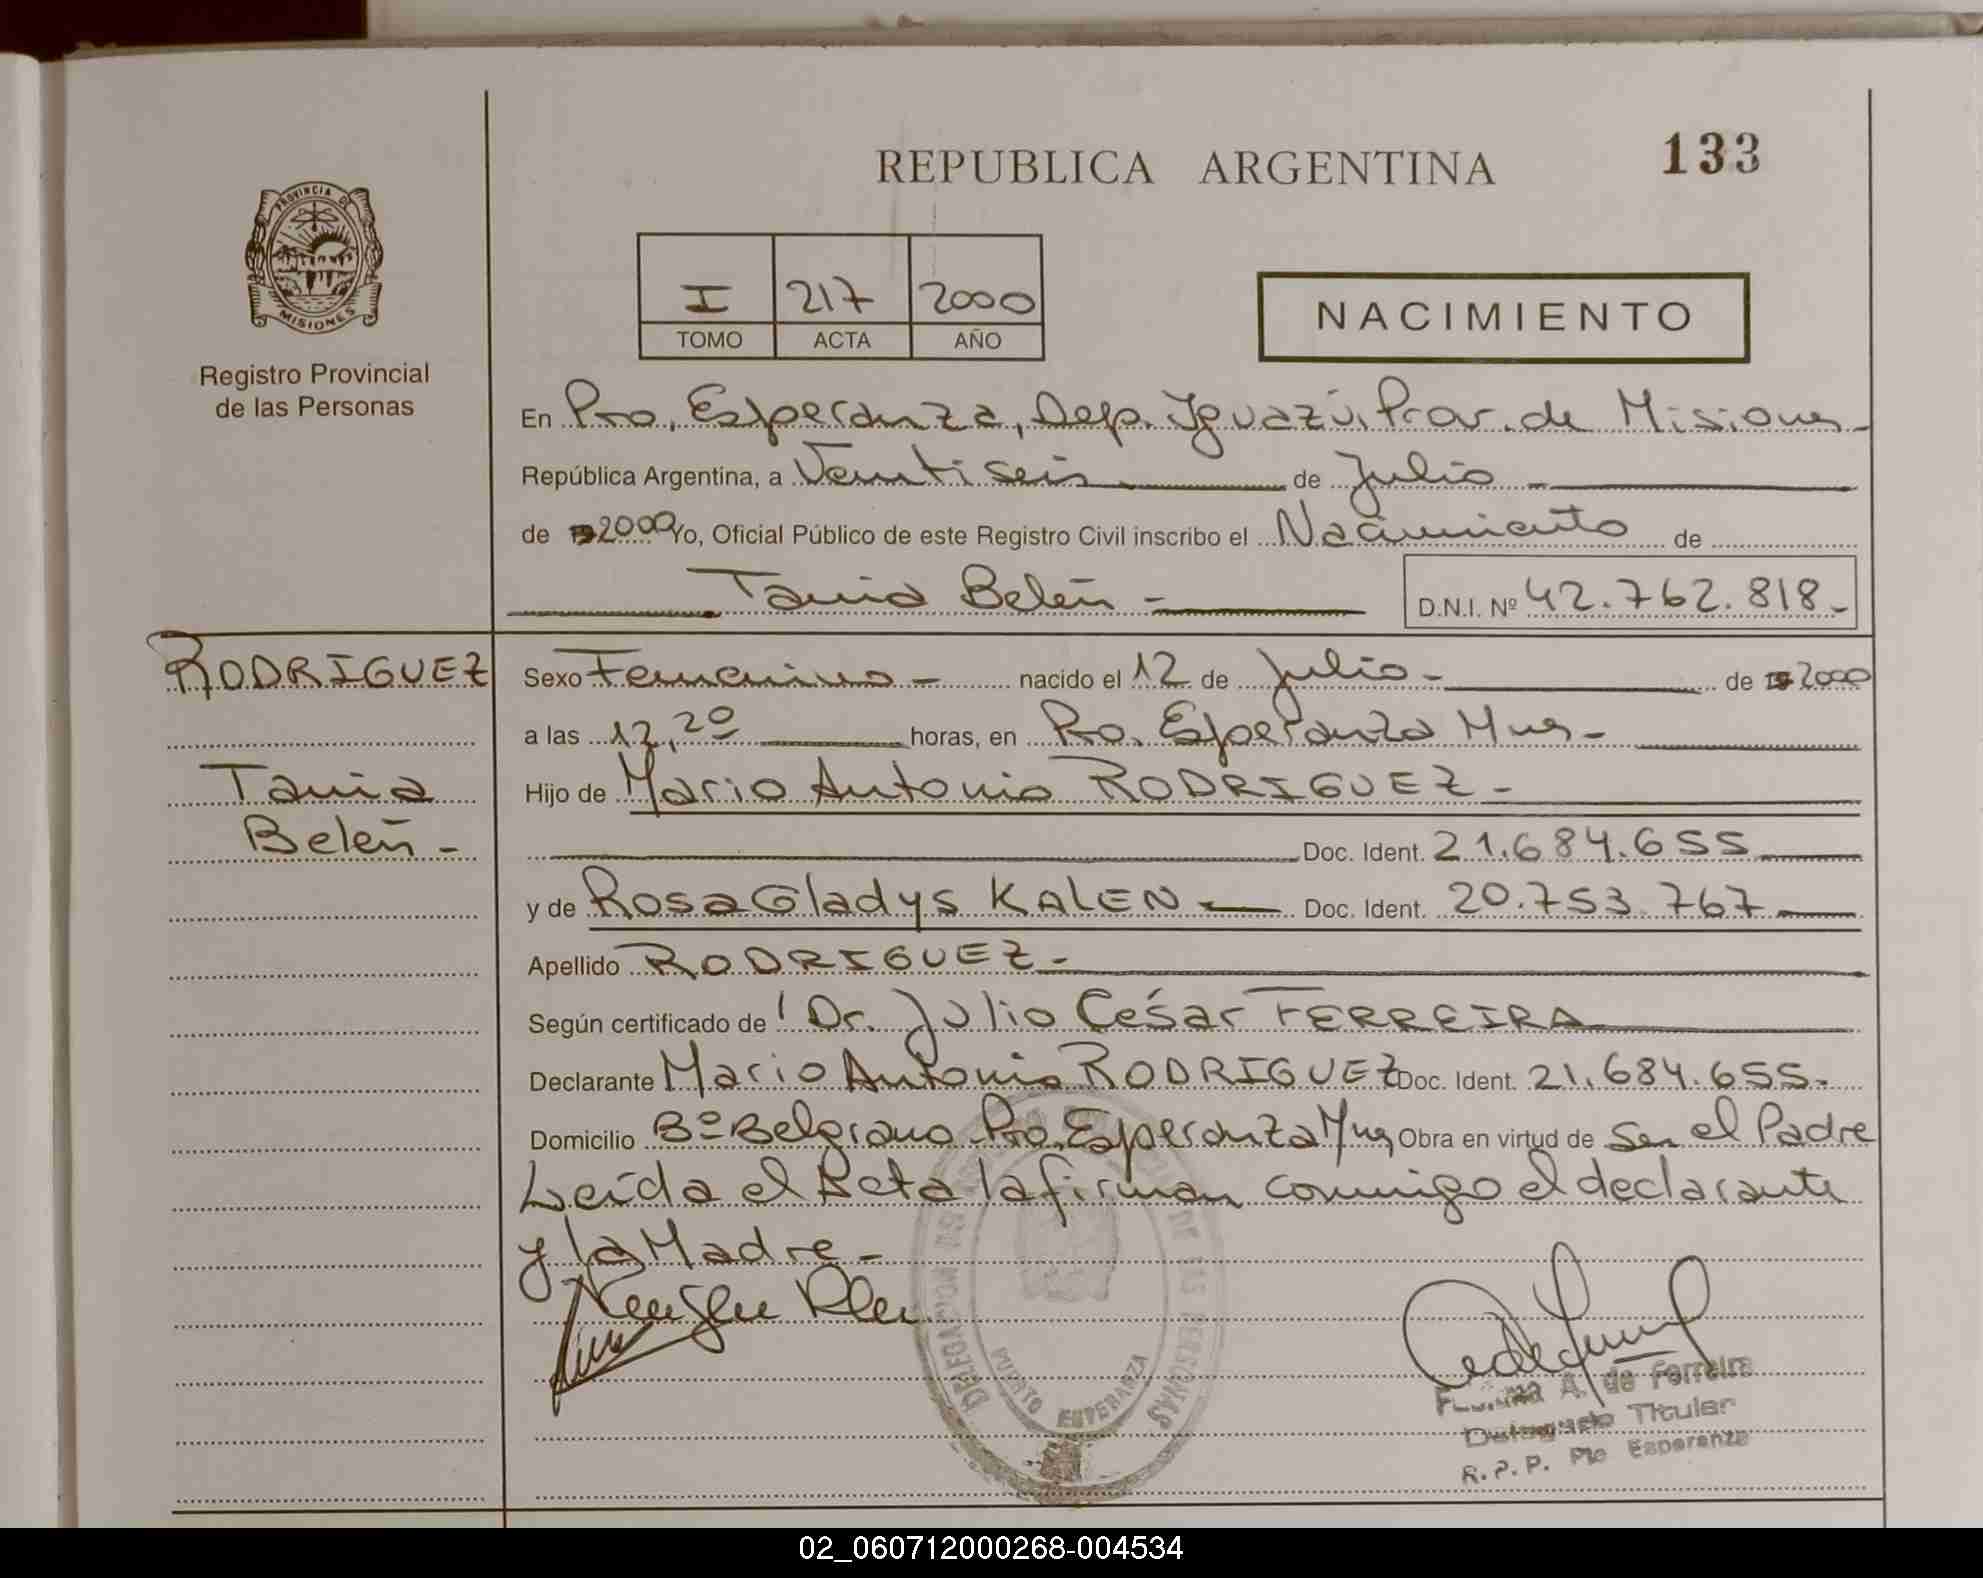 REPUBLICA ARGENTINA
133
PROVINCIA DE
MISIONES
Registro Provincial
de las Personas
I 217 2000
TOMO ACTA AÑO
NACIMIENTO
En Pto. Esperanza, Dep. Iguazú, Prov. de Misiones
República Argentina, a Veintiseis de Julio
de 2000 Yo, Oficial Público de este Registro Civil inscribo el Nacimiento de
Tania Belén
D.N.I. Nº 42.762.818.
RODRIGUEZ
Tania
Belén -
Sexo Femenino - nacido el 12 de Julio - de 2000
a las 12,20 horas, en Pto. Esperanza Mnes -
Hijo de Mario Antonio RODRIGUEZ -
Doc. Ident. 21.684.655
y de Rosa Gladys KALEN Doc. Ident. 20.753.767
Apellido RODRIGUEZ -
Según certificado de Dr. Julio César FERREIRA
Declarante Mario Antonio RODRIGUEZ Doc. Ident. 21.684.655.
Domicilio Bº Belgrano Pto. Esperanza Mnes Obra en virtud de Ser el Padre
Leída el Acta la firman conmigo el declarante
y la Madre -
DELEGACION DE LAS PERSONAS
PUERTO ESPERANZA
A. de Ferreira
Titular
R.P.P. Pto Esperanza
02_060712000268-004534